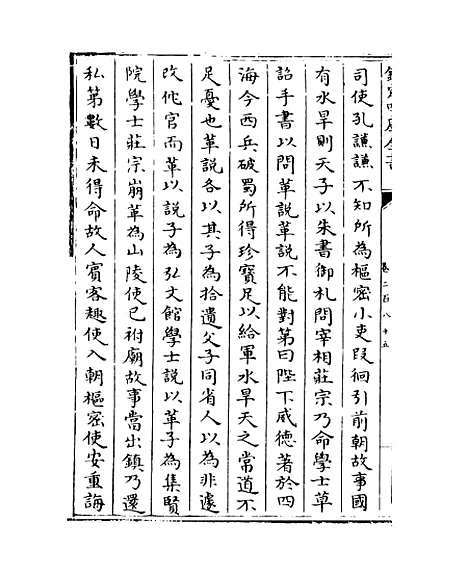 欽定四庫全書
卷二百八十五
司使孔謙謙不知所為樞密小吏段徊引前朝故事國
有水旱則天子以朱書御札問宰相莊宗乃命學士草
詔手書以問革說革說不能對第曰陛下威德著於四
海今西兵破蜀所得珍寶足以給軍水旱天之常道不
足憂也革說各以其子為拾遺父子同省人以為非遽
改佗官而革以說子為弘文館學士說以革子為集賢
院學士莊宗崩革為山陵使已祔廟故事當出鎮乃還
私第數日未得命故人賓客趣使入朝樞密使安重誨